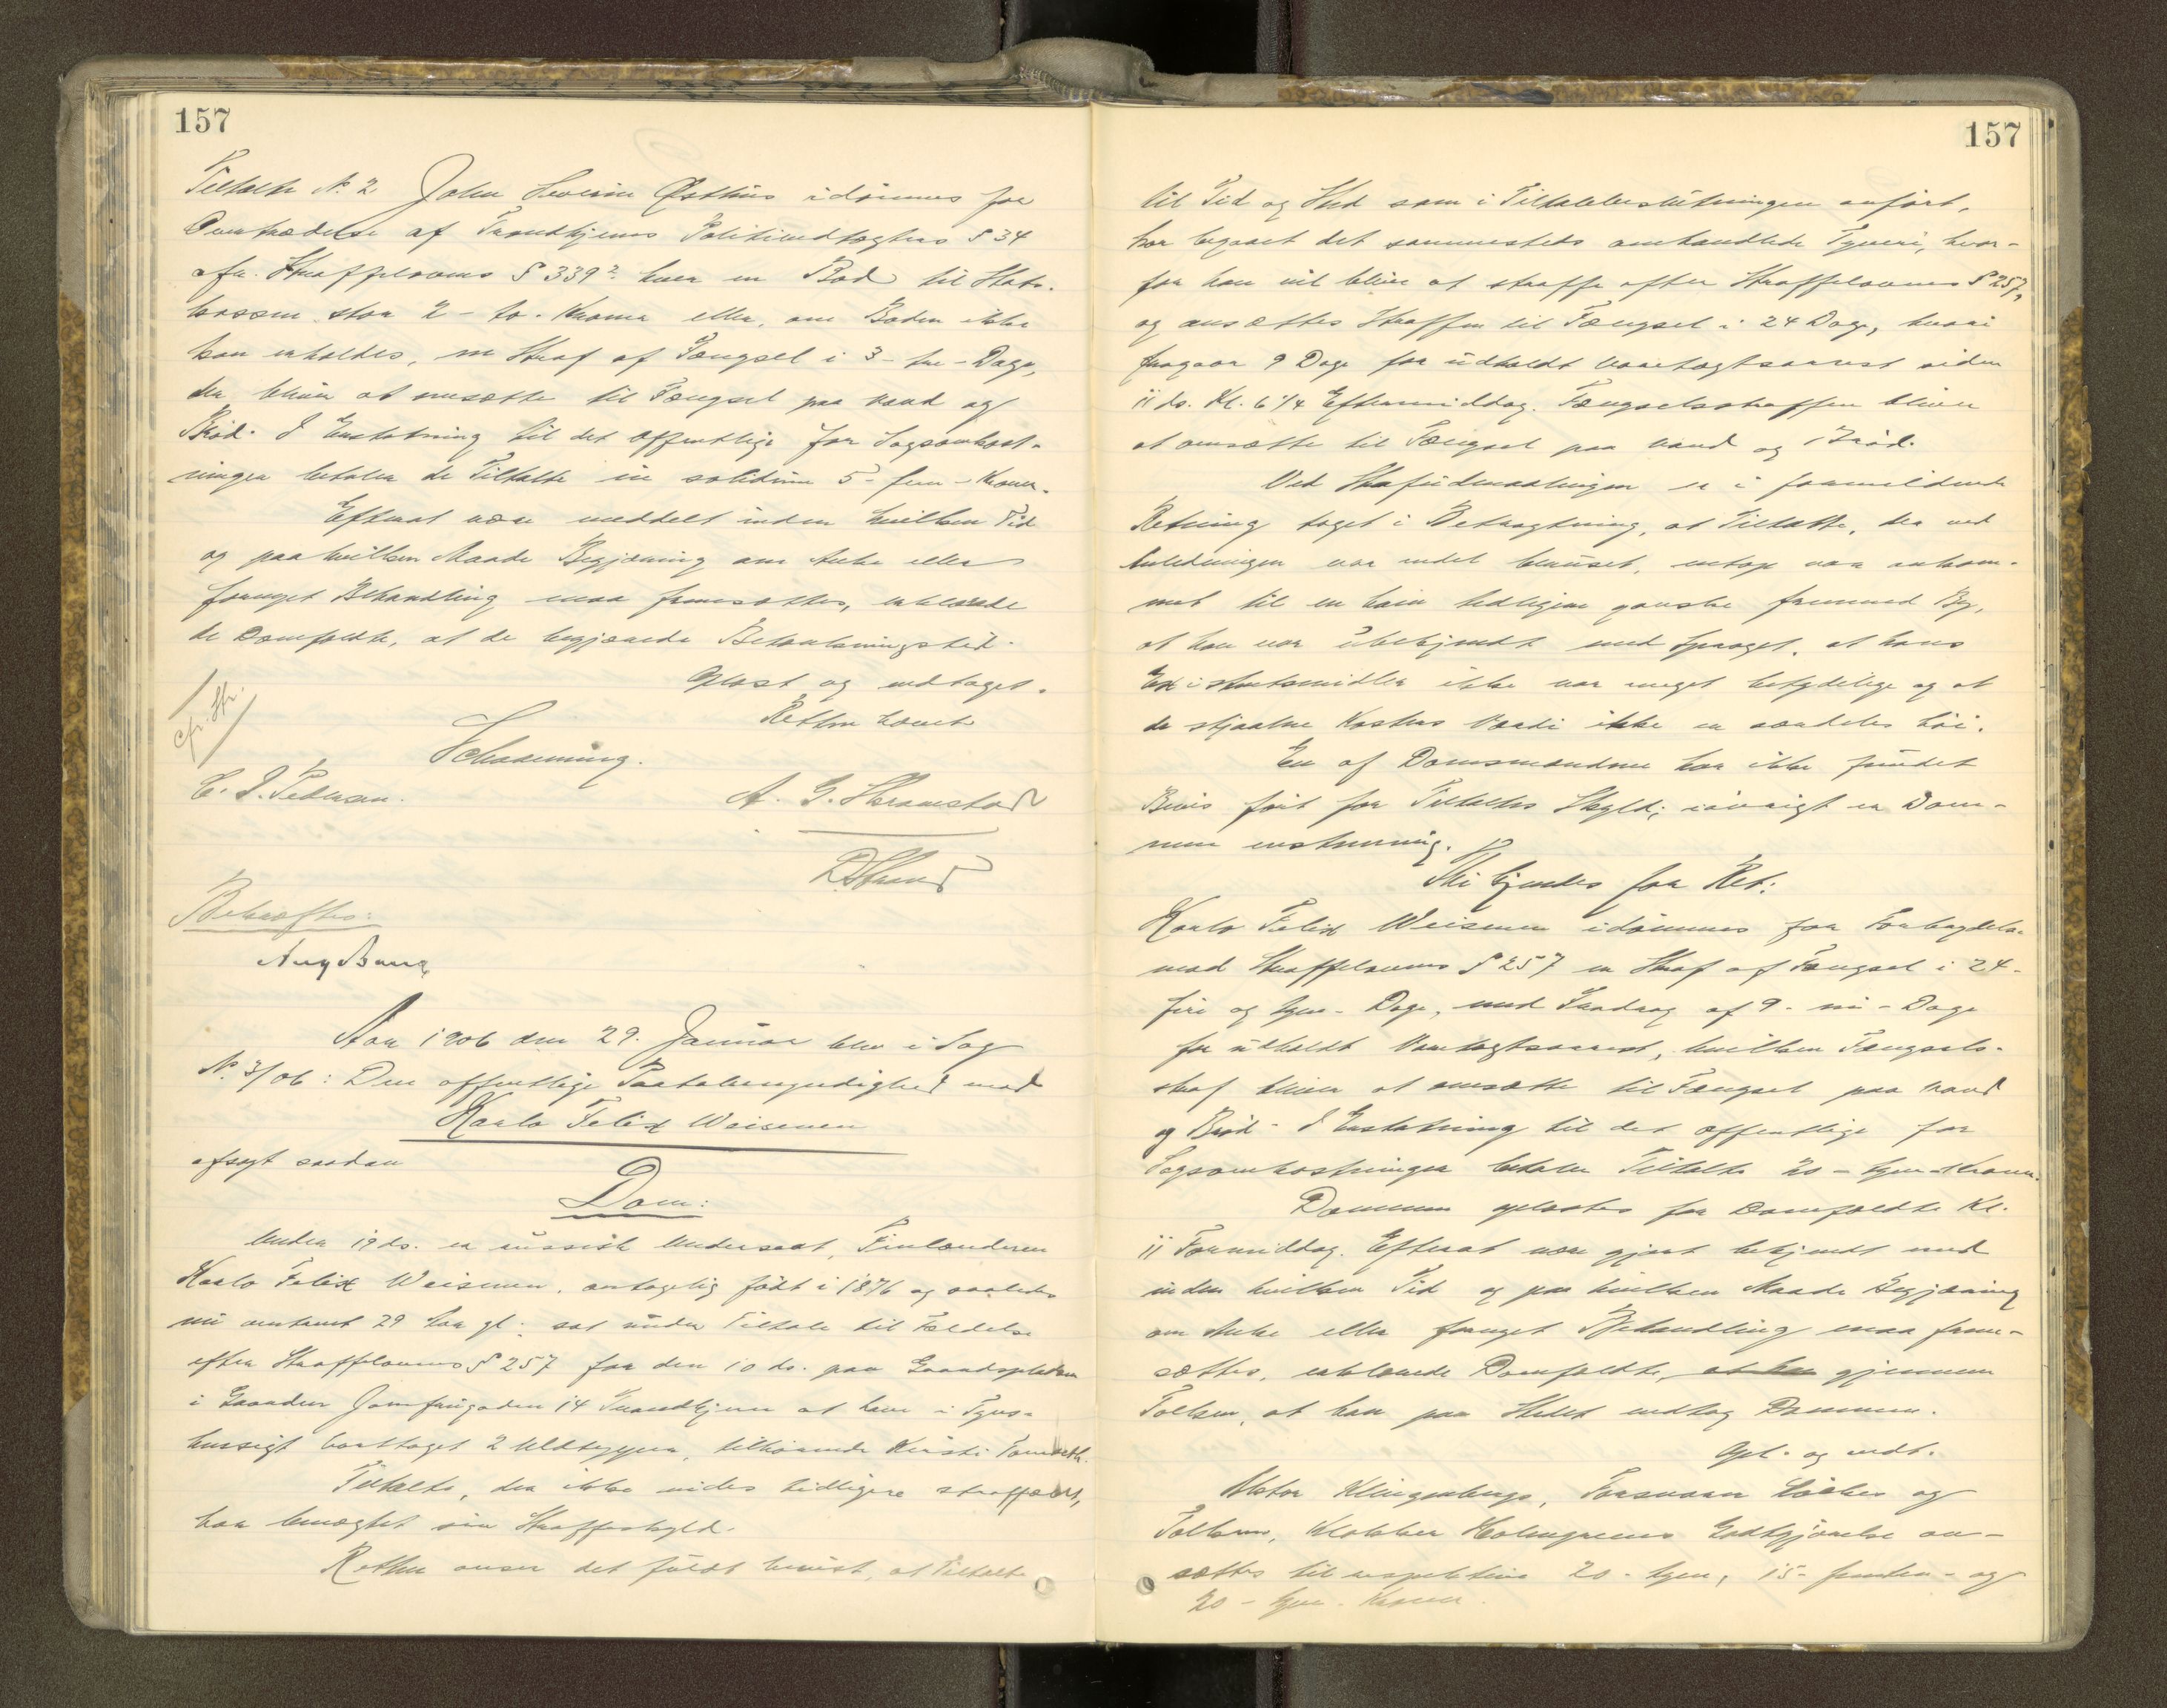 157
Tiltalte No. 2 John Severin Østhus idömmes for
Overtrædelse af Trondhjems Politivedtægters § 34
cfr. Straffelovens § 339² hver en Bod til Stats-
kassen stor 2 - to - Kroner eller, om Boden ikke
kan erholdes, en Straf af Fængsel i 3 - tre - Dage,
der bliver at omsætte til Fængsel paa Vand og
Bröd. I Erstatning til det offentlige for Sagsomkost-
ninger betaler de Tiltalte in solidum 5 - fem - Kroner.
Efterat være meddelt inden hvilken Tid
og paa hvilken Maade Begjæring om Anke eller
fornyet Behandling maa fremsættes, erklærede
de Domfældte, at de begjærede Betænkningstid.
Oplæst og vedtaget.
Retten hævet
cfr. Str.
Schanning.
C. J. Pedersen.
A. G. Skramstad
Strand
Bekræftes:
Aar 1906 den 29. Januar blev i Sag
No. 3/06: Den offentlige Paatalemyndighed mod
Karlo Felix Weisenen
afsagt saadan
Dom:
Under 19 ds. er russisk Undersaat, Finlænderen
Karlo Felix Weisenen, antagelig födt i 1876 og saaledes
nu omtrent 29 Aar gl. sat under Tiltale til Fældelse
efter Straffelovens § 257 for den 10 ds. paa Gaardspladsen
i Gaarden Jomfrugaden 14 Trondhjem at have i Tyvs-
hensigt borttaget 2 Uldtæpper, tilhörende Kirsti
Tiltalte, der ikke vides tidligere straffet,
har benægtet sin Straffeskyld.
Retten anser det fuldt bevist, at Tiltalte
157
til Tid og Sted som i Tiltalebeslutningen anfört,
har begaaet det sammesteds omhandlede Tyveri, hvor-
for han vil blive at straffe efter Straffelovens § 257,
og ansættes Straffen til Fængsel i 24 Dage, hvori
fragaar 9 Dage for udholdt Varetægtsarrest siden
11 ds. Kl. 6 1/4 Eftermiddag. Fængselsstraffen bliver
at omsætte til Fængsel paa Vand og Bröd.
Ved Strafudmaalingen er i formildende
Retning taget i Betragtning, at Tiltalte, der ved
Anledningen var endel beruset, netop var ankom-
met til en ham tidligere ganske fremmed By,
at han var ubekjendt med Sproget, at hans
Existentsmidler ikke var meget betydelige og at
de stjaalne Kosters Værdi ikke er særdeles höi.
En af Domsmændene har ikke fundet
Bevis fört for Tiltaltes Skyld; iövrigt er Dom-
men enstemmig.
Thi kjendes for Ret:
Karlo Felix Weisenen idömmes for Forbrydelse
mod Straffelovens § 257 en Straf af Fængsel i 24 -
fire og tyve - Dage, med Fradrag af 9 - ni - Dage
for udholdt Varetægtsarrest, hvilken Fængsels-
straf bliver at omsætte til Fængsel paa Vand
og Bröd. I Erstatning til det offentlige for
Sagsomkostninger betaler Tiltalte 20 - tyve - Kroner.
Dommen oplæstes for Domfældte Kl.
11 Formiddag. Efterat være gjort bekjendt med
inden hvilken Tid og paa hvilken Maade Begjæring
om Anke eller fornyet Behandling maa frem-
sættes, erklærede Domfældte, at han gjennem
Tolken, at han paa Stedet vedtog Dommen.
Opl. og vedt.
Aktor Klingenbergs, Forsvarer og
Tolken, Klokker Holmgrens Godtgjörelse an-
sættes til respektive 20 - tyve, 15 - femten - og
20 - tyve - Kroner.